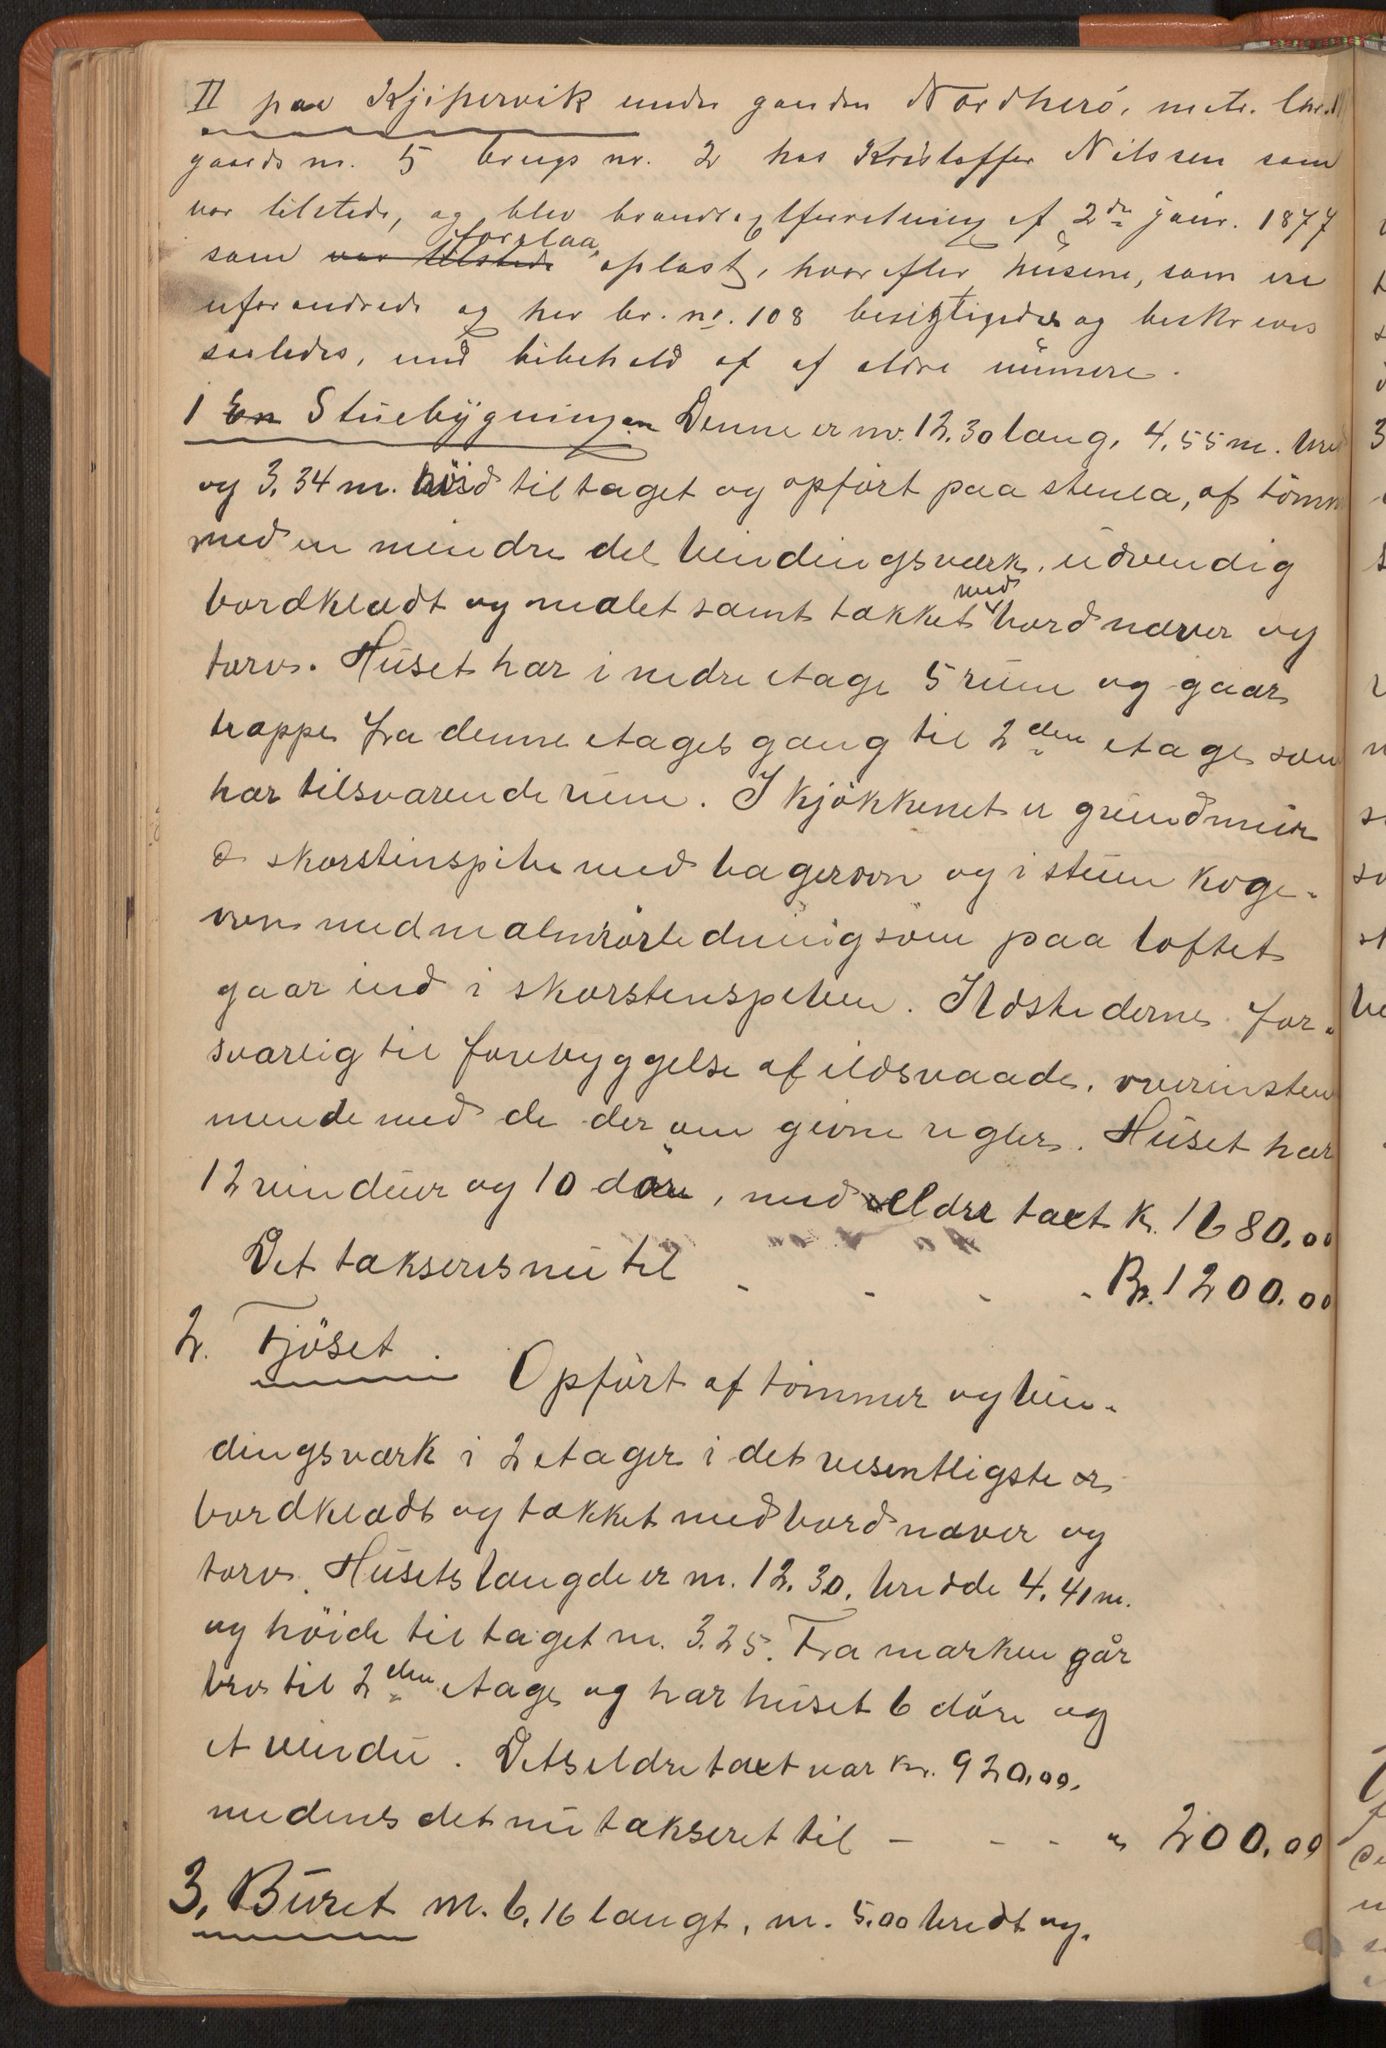 II paa Kjipervik under gaarden Nordherø, matr.
gaards nr. 5 brugs nr. 2 hos Kristoffer Nilssen som
var tilstede, og blev brandtaxtforretning af 2den janr. 1877
som var tilstede forelaa oplæst, hvorefter husene, som ere
uforandrede og her br. no. 108 besigtigedes og beskreves
saaledes, med bibehold af af ældre numere.
1 En Stuebygningen Denne er m. 12.30 lang, 4,55 m. bred
og 3,34 m. høid til taget og opført paa stenla, af tømm
med en mindre del bindingsværk, udvendig
bordklædt og malet samt tækket med bord næver og
torv. Huset har i nedre etage 5 rum og gaar
trappe fra denne etages gang til 2den etage som
har tilsvarende rum. I kjøkkenet er grundmur
d skorstenspibe med bagerovn og i stuen koge-
ovn med malmrørledning som paa loftet
gaar ind i skorstenspiben. Ildstederne for-
svarlig til forebyggelse af ildsvaade, overenstem
mende med de der om givne regler. Huset har
12 vinduer og 10 døre, med ældre taxt k. 1680.00
Det takseres nu til - - - - Kr. 1200.00
2. Fjøset. Opført af tømmer og bin-
dingsværk i 2 etager i det vesentligste er
bordklædt og tækket med bord næver og
torv. Husets længde er m. 12.30, bredde 4.41 m.
og høide til taget m. 3.25. Fra marken går
bro til 2den etage og har huset 6 døre og
et vindu. Dets ældre taxt var kr. 920,00,
medens det nu takseret til - - - " 200.00
3. Buret m. 6,16 langt, m. 5,00 bredt og